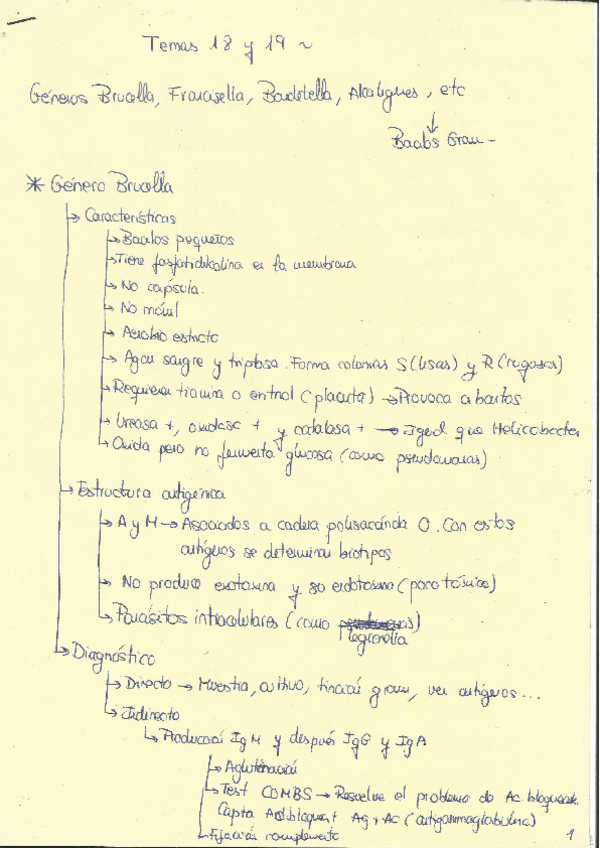 Temas 18 y 19 ~
Géneros Brucella, Francisella, Bordetella, Alcaligenes, etc
↓
Bacilos Gram -
* Género Brucella
→ Características
→ Bacilos pequeños
→ Tiene fosfatidilcolina en la membrana
→ No cápsula.
→ No móvil
→ Aerobio estricto
→ Agar sangre y triptosa. Forma colonias S (lisas) y R (rugosas)
→ Requieren tiamina o eritritol (placenta) → Provoca abortos
→ Ureasa +, oxidasa + y catalasa + → Igual que Helicobacter
→ Oxida pero no fermenta glucosa (como pseudomonas)
→ Estructura antigénica
→ A y M → Asociados a cadena polisacárida O. Con estos
antígenos se determinan biotipos
→ No produce exotoxina y so endotoxina (poco tóxica)
→ Parásitos intracelulares (como legionella)
→ Diagnóstico
→ Directo → Muestra, cultivo, tinción gram, ver antígenos...
→ Indirecto
→ Producción IgM y después IgG y IgA
→ Aglutinación
→ Test COMBS → Resuelve el problema de Ac bloqueant.
Capta Ac bloqueant Ag + Ac (antigammaglobulina)
→ Fijación complemento
1